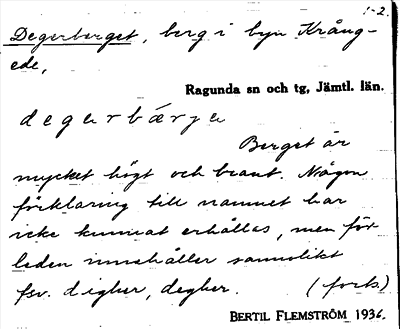 1-2.
Degerberget, berg i byn Krång-
ede,
Ragunda sn och tg, Jämtl. län.
degerbärje
Berget är
mycket högt och brant. Någon
förklaring till namnet har
icke kunnat erhållas, men för
leden innehåller sannolikt
fsv. digher, degher. (forts.)
BERTIL FLEMSTRÖM 1936.